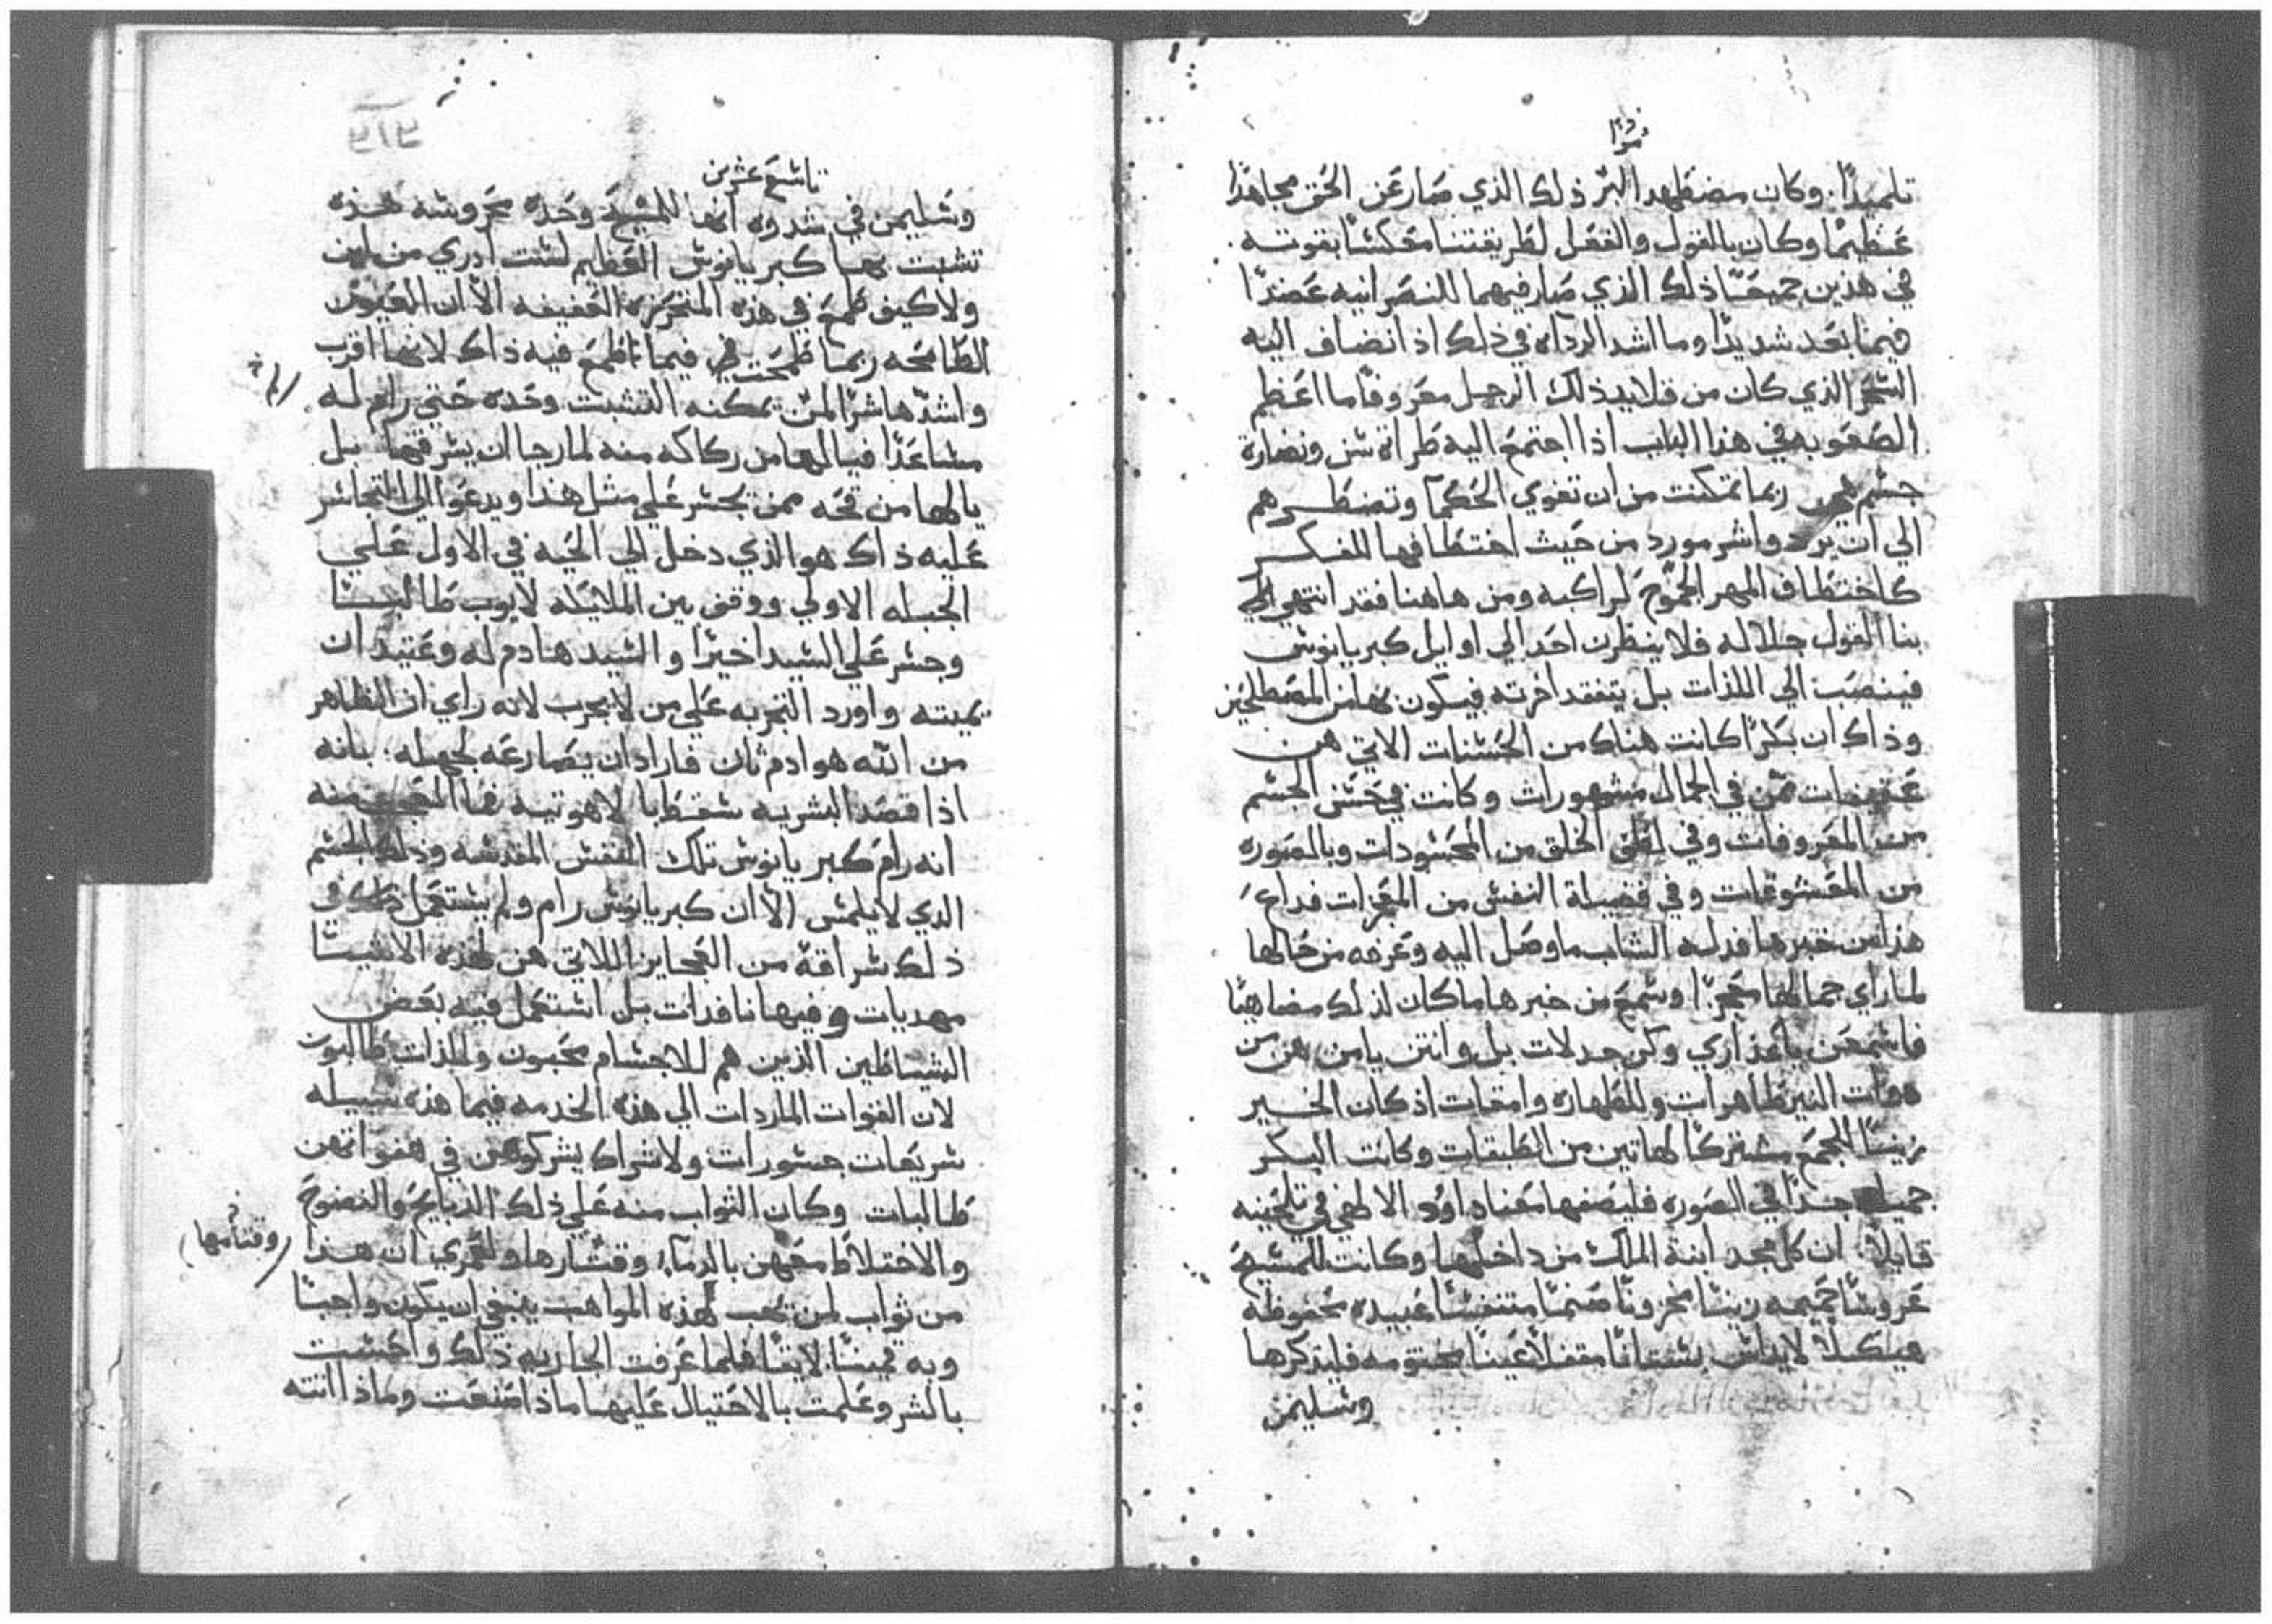 تلميذًا. وكان مضطهدا البر ذلك الذي صار عن الحق مجاهدًا
عظيمًا وكان بالقول والفعل لطريقتنا معكسًا بقوته
في هذين جميعًا ذلك الذي صار فيهما للنصرانيه عضدًا
فيما بعد شديدًا وما اشد الرداه في ذلك اذ انضاف اليه
السحر الذي كان من قلايد ذلك الرجل معروفًا ما اعظم
الصعوبه في هذا الباب اذا اجتمع اليه طراة سن ونضارة
جسم ربما تمكنت من ان تغوي الحكما وتضطرهم
الي ان يردوا شر مورد من حيث اختطافها للفكر
كاختطاف المهر الجموح لراكبه ومن هاهنا فقد انتهي
بنا القول جلاله فلا ينظرن احد الي اوايل كبريانوس
فينصب الي اللذات بل يتفقد اخرته فيكون بها من المصطلحين
وذاك ان بكرًا كانت هناك من الحسنات الاتي هن
عفيفات ممن في الجمال مشهورات وكانت في حسن الجسم
من المعروفات وفي الخلق من المحسودات وبالصوره
من المعشوقات وفي فضيلة النفس من
هذا من خبرها فدله الشاب ما وصل اليه وعرفه من حالها
لما راي جمالها وسمع من خبرها ما كان لذلك مضاهيًا
فاسمعن يا عذاري وكن جدلات بل وانتن يامن هن من
ذوات النير طاهرات وللطهاره وامقات اذ كان الخبر
زينتًا للجميع مشتركًا لهاتين من الطبقات وكانت البكر
جميلة جدًا في الصوره فليصفها معنا داود الالاهي في تلحينه
قايلاً ان كل مجد ابنة الملك من داخلها وكانت للمسيح
عروسًا حميمه زينتًا مخزونًا صنمًا متنفسًا عبيده محفوظه
هيكلاً لا يداس بستانًا مقفلاً عينًا مختومه فليذكرها
وسليمن
تاسع عشرين
وسليمن في شدوه انها للمسيح وحده محروسه هذه
تشبت بها كبريانوس العظيم لست ادري من اين
ولا كيف طمع في هذه المتحرزه العفيفه الا ان العيون
الطامحه ربما طمحت في فيما تطمع فيه ذاك لانها اقرب
واشدها شرًا لمن يمكنه التشبت وحده حتي رام له
مساعدًا فيالها من ركاكه منه لما رجا ان يسرقها بل
يالها من قحه ممن يجسر علي مثل هذا ويدعوا الي التجاسر
عليه ذاك هو الذي دخل الي الحيه في الاول علي
الجبله الاولي ووقف بين الملايكه لايوب طالبًا
وجسر علي السيد اخيرًا والسيد هادم له وعتيد ان
يميته واورد التجربه علي من لا يجرب لانه راي ان الظاهر
من الله هو ادم ثان فاراد ان يصارعه لجهله. بانه
اذا قصد البشريه سقط بالاهوتيه فما العجب منه
انه رام كبريانوس تلك النفس المقدسه وذلك الجسم
الذي لا يلمس الا ان كبريانوس رام ولم يستعمل ذلك في
ذلك سراقة من العجايز اللاتي هن لهذه الاشيا
مهديات وفيها نافدات بل استعمل فيه بعض
الشياطين الذين هم للاجسام محبون وللذات طالبون
لان القوات الماردات الي هذه الخدمه فيما هذه سبيله
سريعات جسورات ولاشراك يشركونهن في هفواتهن
طالبات وكان الثواب منه علي ذلك الذبايح والنضوح
والاختلاط معهن بالدما وقتارها ولعمري ان هذا
وقتامها
من ثواب لمن يحب لهذه المواهب ينبغي ان يكون واجبًا
وبه قمينًا لايقًا فلما عرفت الجاريه ذلك واحست
بالشر وعلمت بالاحتيال عليها ماذا صنعت وماذا اتته